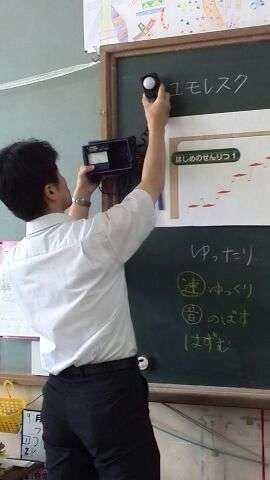 ユモレスク
はじめのせんりつ1
ゆったり
速 ゆっくり
音 のばす
はずむ
9月